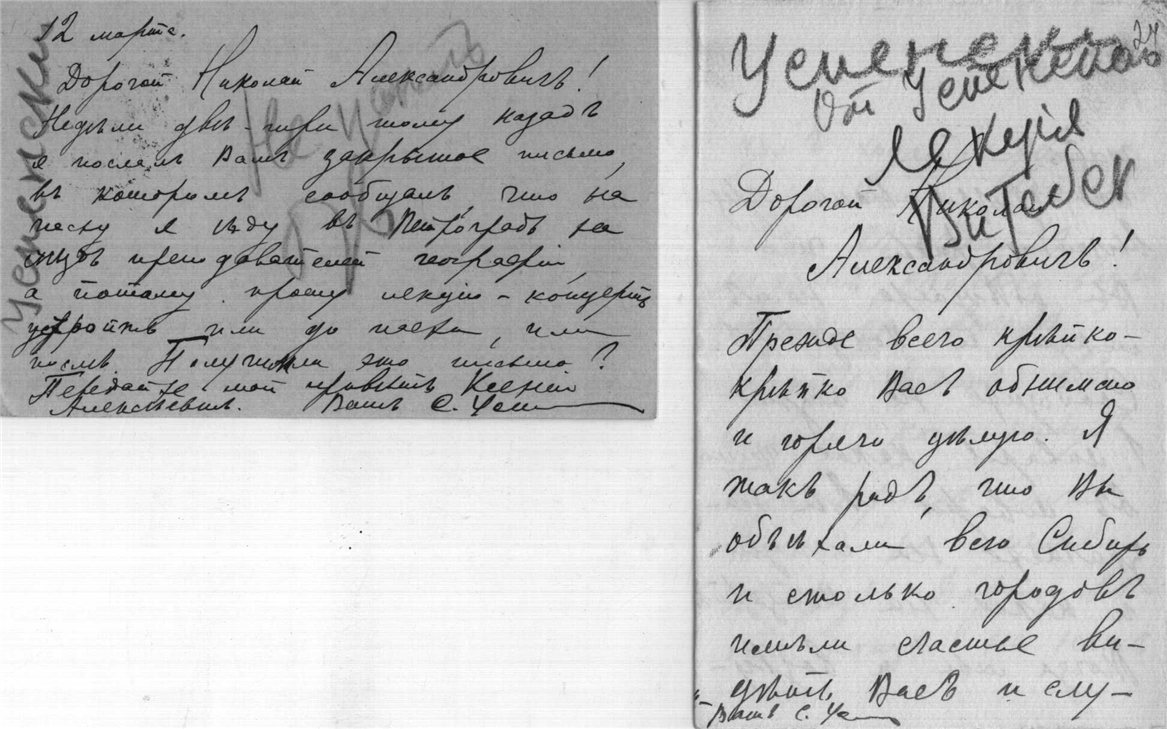 12 марта.
Дорогой Николай Александровичъ!
Недѣли двѣ-три тому назадъ
я послалъ Вамъ закрытое письмо,
въ которомъ сообщалъ, что на
пасху я ѣду въ Петроградъ на
съѣздъ преподавателей географіи,
а потому прошу лекцію-концертъ
устроить или до пасхи или
послѣ. Получили это письмо?
Передайте мой привѣтъ Ксеніи
Алексѣевнѣ. Вашъ С. Успе
Успенский
Успенск
24
От Успенскаго
лекция
Витебск
Дорогой Николай
Александровичъ!
Прежде всего крѣпко-
крѣпко Васъ обнимаю
и горячо цѣлую. Я
такъ радъ, что Вы
объѣхали всю Сибирь
и столько городовъ
имѣли счастье ви-
дѣть Васъ и слу-
Вашъ С. Успе